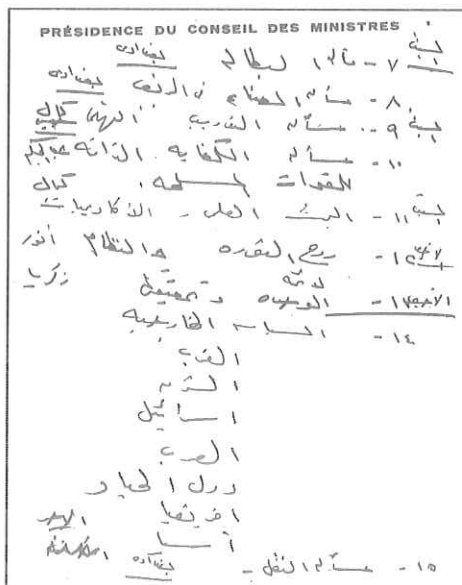 PRÉSIDENCE DU CONSEIL DES MINISTRES
٧ - مسألة البطالة بغدادى
٨ - مسألة الصناعة فى الريف بغدادى
٩ - مسألة التدريب المهنى كمال
١٠ - مسألة الكفاية الذاتية
للقوات المسلحة
١١ - البحث العلمى - الأكاديميات كمال
١٢ - روح الثورة والنظام أنور
١٣ - الوحدة زكريا
١٤ - السياسة الخارجية
الغرب
الشرق
اسرائيل
العرب
دول الحياد
افريقيا
آسيا
١٥ - مسألة النقل - بغدادى